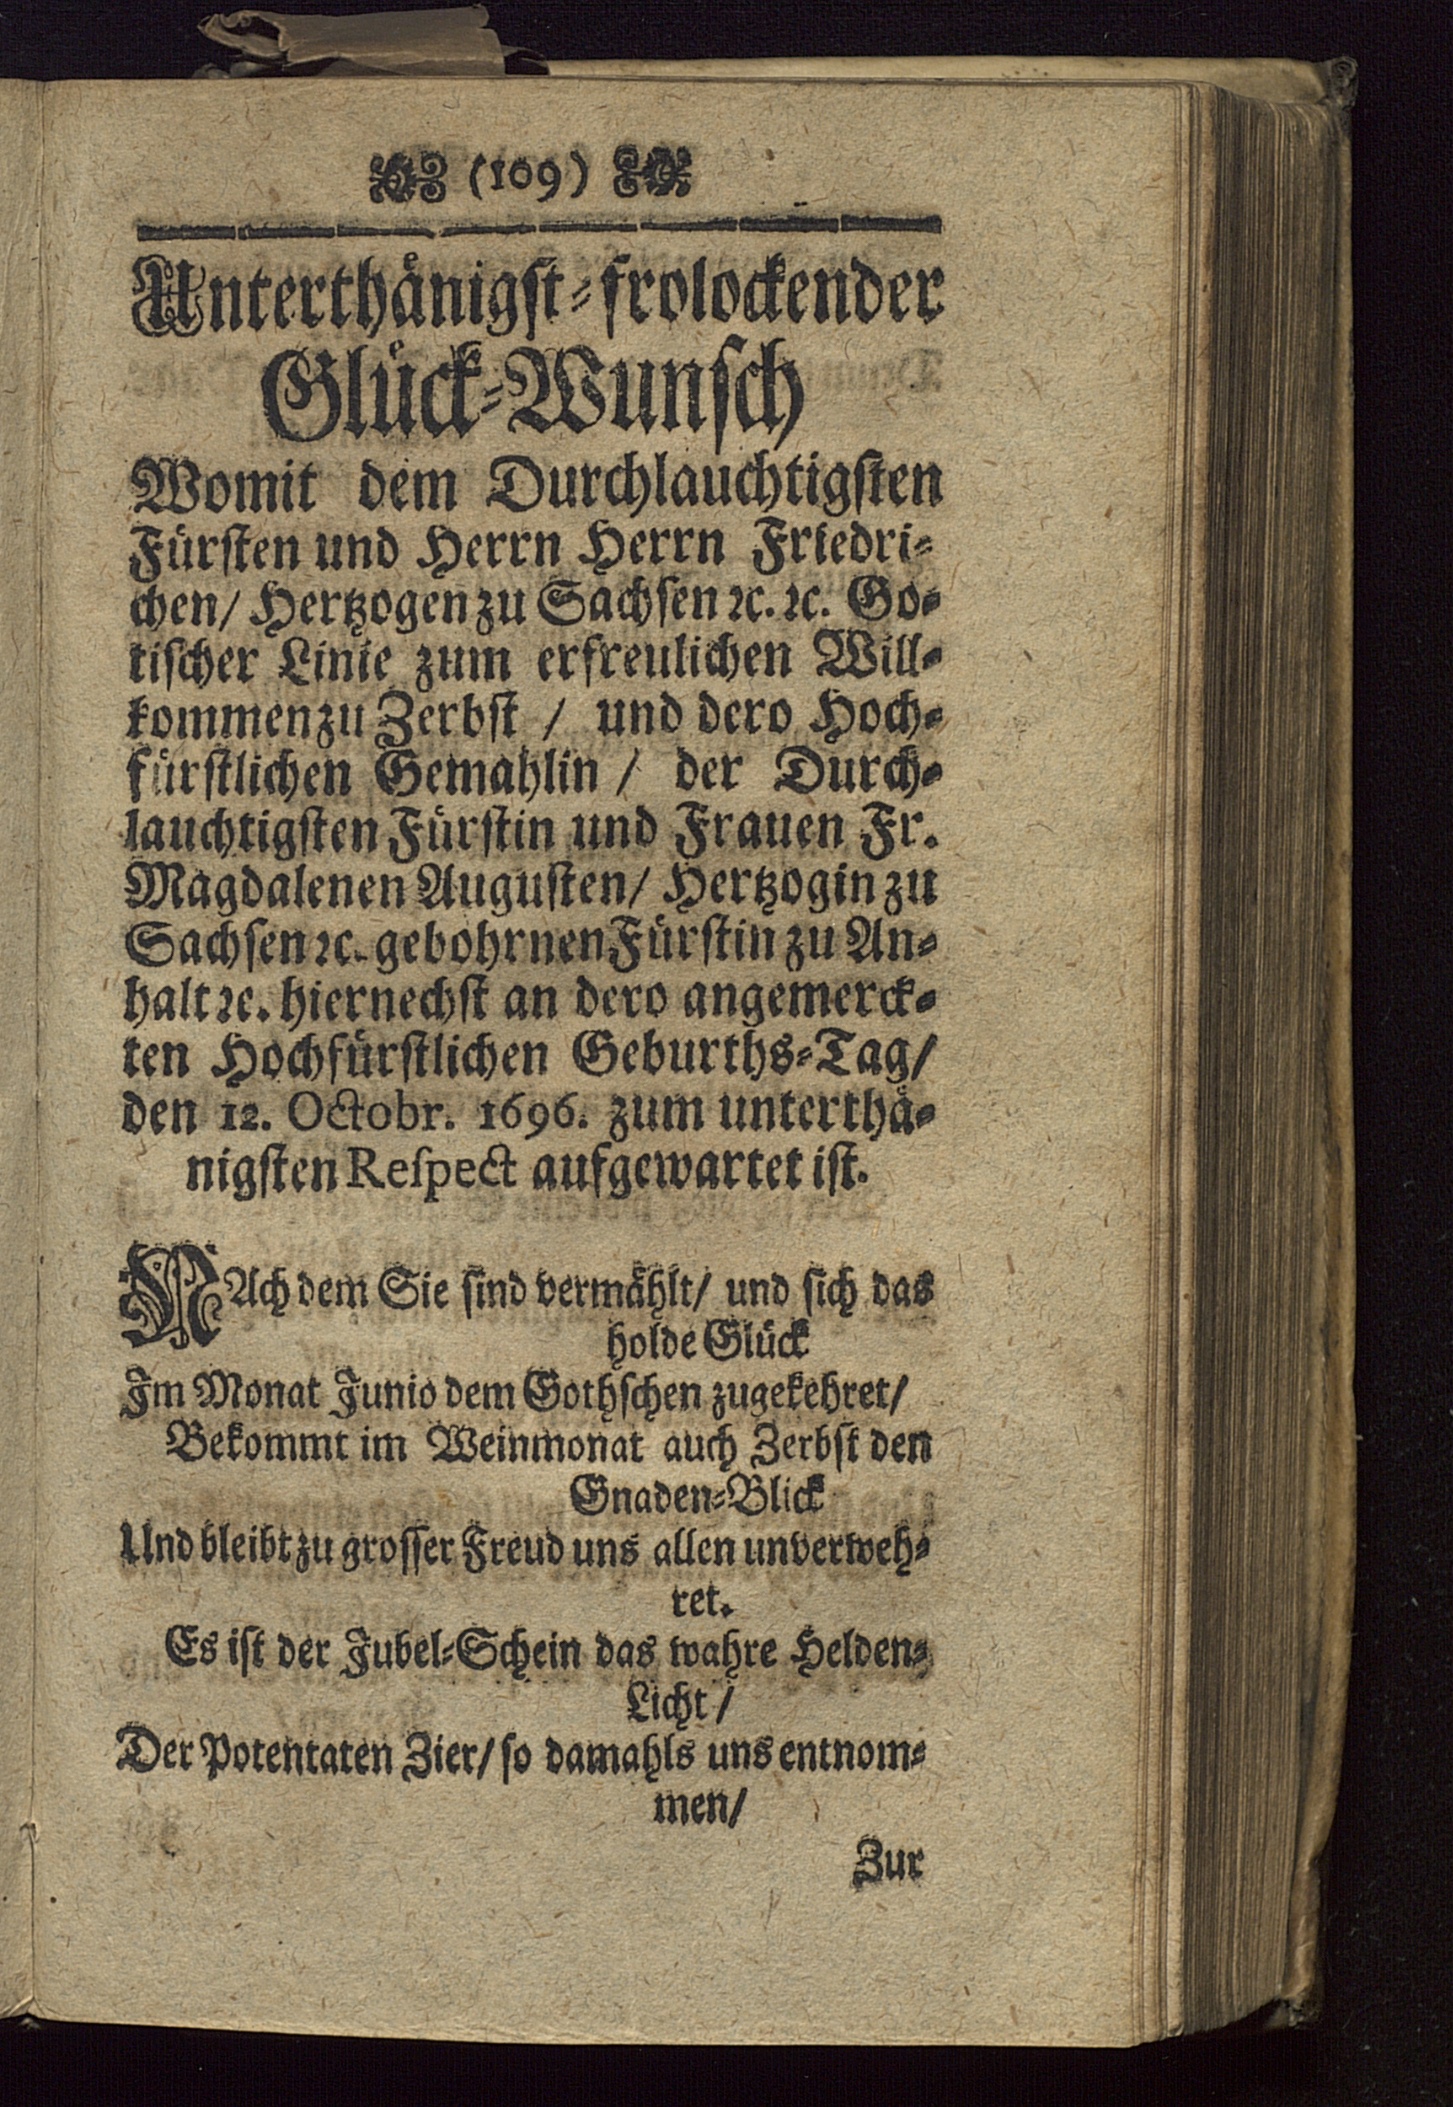 (109)
Unterthänigst-frolockender
Glück-Wunsch
Womit dem Durchlauchtigsten
Fürsten und Herrn Herrn Friedri-
chen/ Hertzogen zu Sachsen ꝛc. ꝛc. Go-
tischer Linie zum erfreulichen Will-
kommen zu Zerbst / und dero Hoch-
fürstlichen Gemahlin / der Durch-
lauchtigsten Fürstin und Frauen Fr.
Magdalenen Augusten/ Hertzogin zu
Sachsen ꝛc. gebohrnen Fürstin zu An-
halt ꝛc. hiernechst an dero angemerck-
ten Hochfürstlichen Geburths-Tag/
den 12. Octobr. 1696. zum unterthä-
nigsten Respect aufgewartet ist.
NAch dem Sie sind vermählt/ und sich das
holde Glück
Im Monat Junio dem Gothschen zugekehret/
Bekommt im Weinmonat auch Zerbst den
Gnaden-Blick
Und bleibt zu grosser Freud uns allen unverweh-
ret.
Es ist der Jubel-Schein das wahre Helden-
Licht /
Der Potentaten Zier/ so damahls uns entnom-
men/
Zur